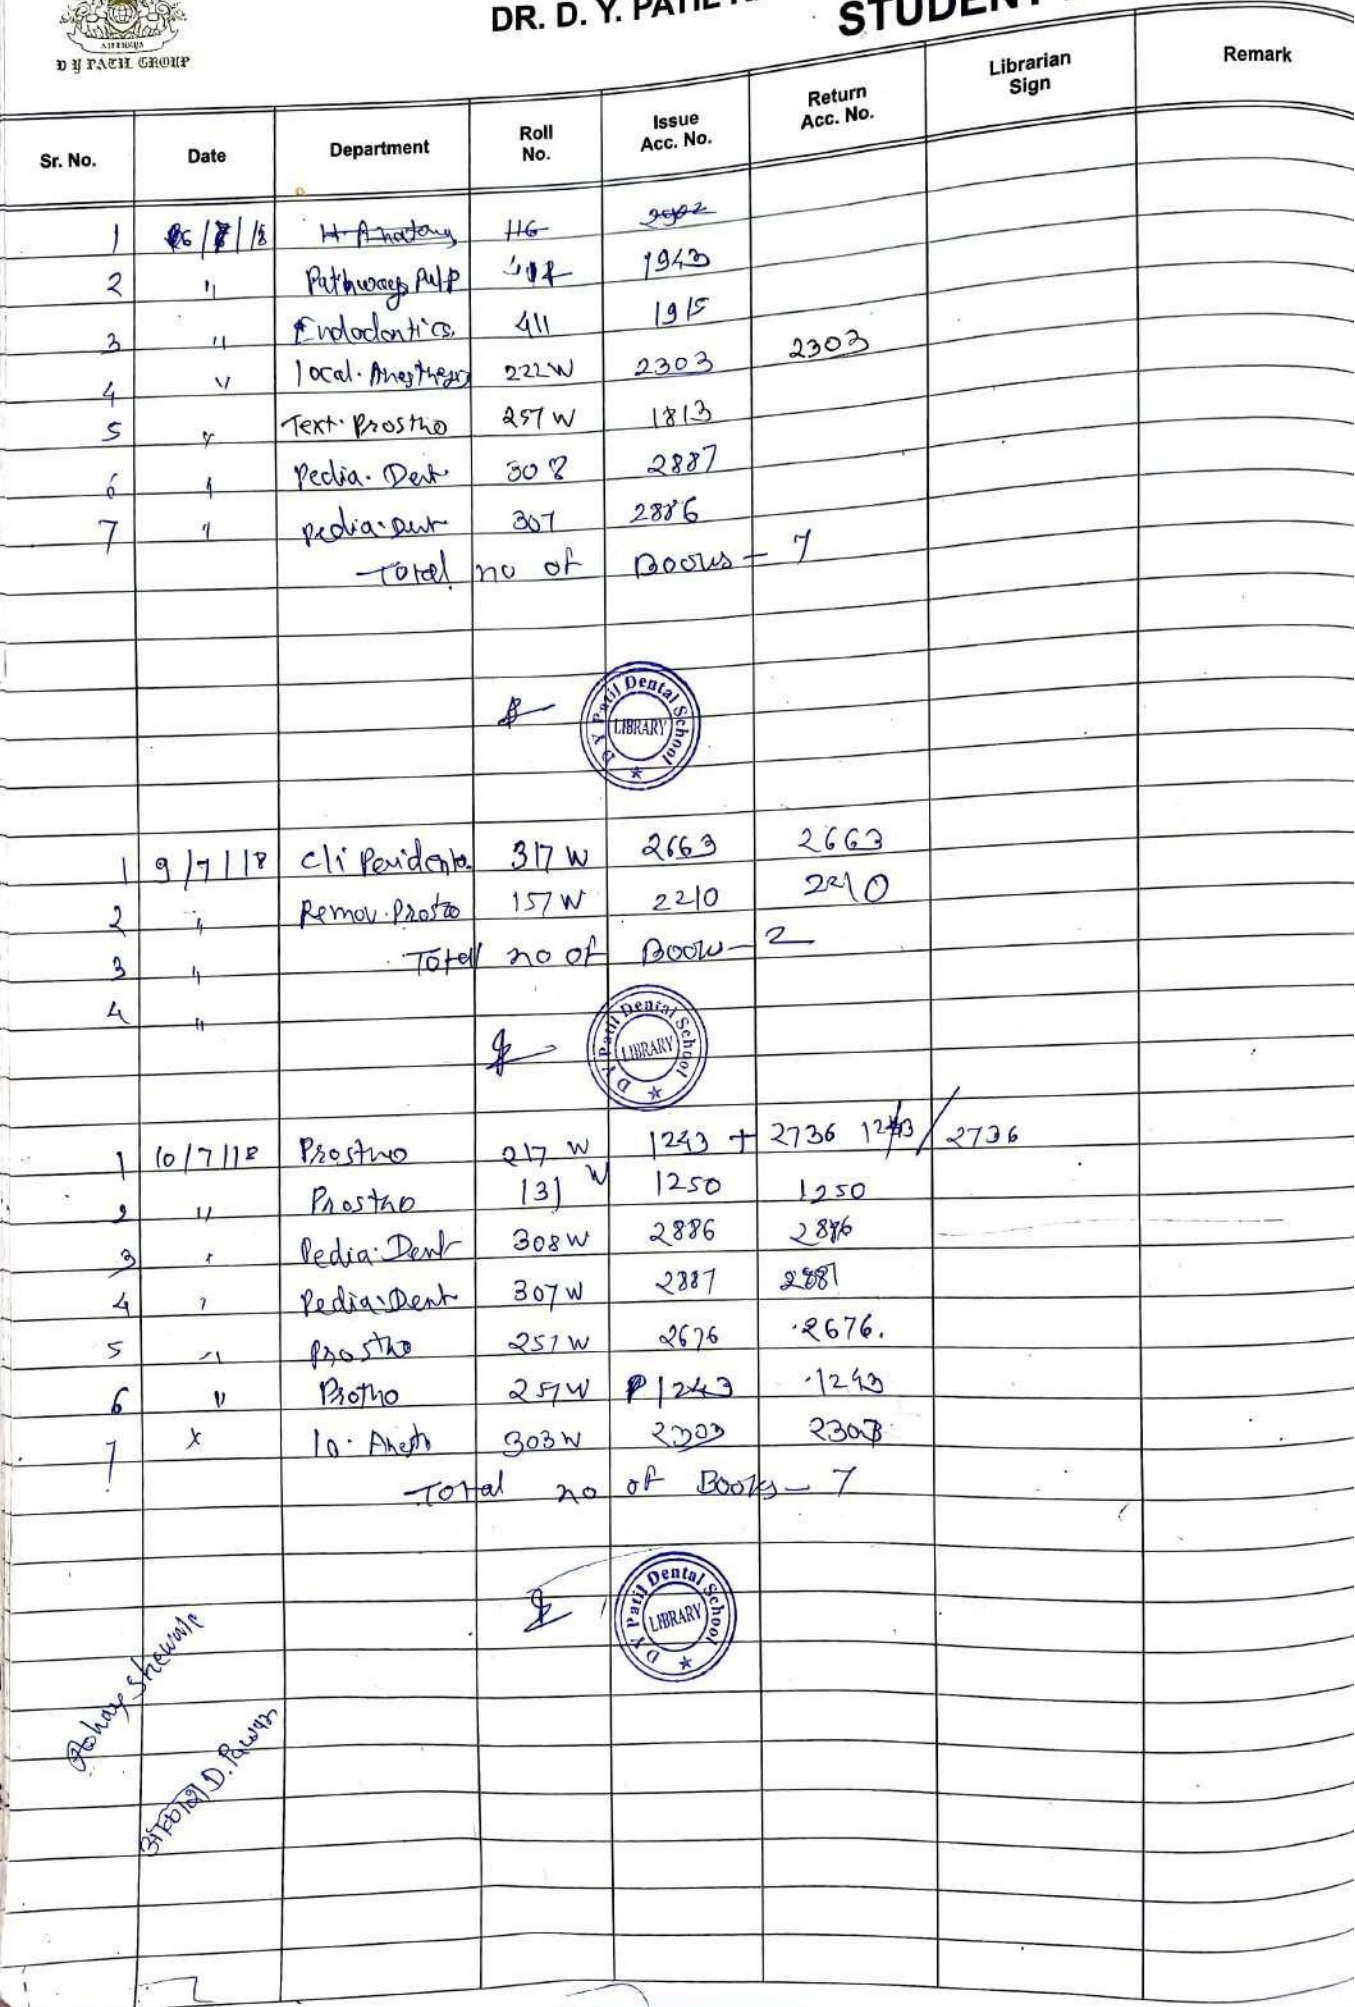 D Y PATIL GROUP
DR. D. Y. PATIL
STUDENT
Sr. No. Date Department Roll No. Issue Acc. No. Return Acc. No. Librarian Sign Remark
1 /18 H-Anatomy 116
2 " Pathways Pulp 1943
3 " Endodontics 411 1915
4 " local. Anesthesia 222W 2303 2303
5 " Text. Prostho 257 W 1813
6 " Pedia. Dent 308 2887
7 " Pedia. Dent 307 2886
Total no of Books - 7
D Y Patil Dental School
LIBRARY
1 9/7/18 Cli Peridonto. 317 W 2663 2663
2 " Remov. Prosto 157 W 2210 2210
3 " Total no of Book - 2
4 "
D Y Patil Dental School
LIBRARY
1 10/7/18 Prostho 217 W 1243 + 2736 1243 / 2736
2 " Prostho 131 W 1250 1250
3 " Pedia. Dent 308 W 2886 2886
4 " Pedia. Dent 307 W 2887 2887
5 " Prostho 257 W 2676 2676.
6 " Protho 257 W 1243 1243
7 lo. Anesth 303 W 2303 2303
Total no of Books - 7
D Y Patil Dental School
LIBRARY
D. Pawar